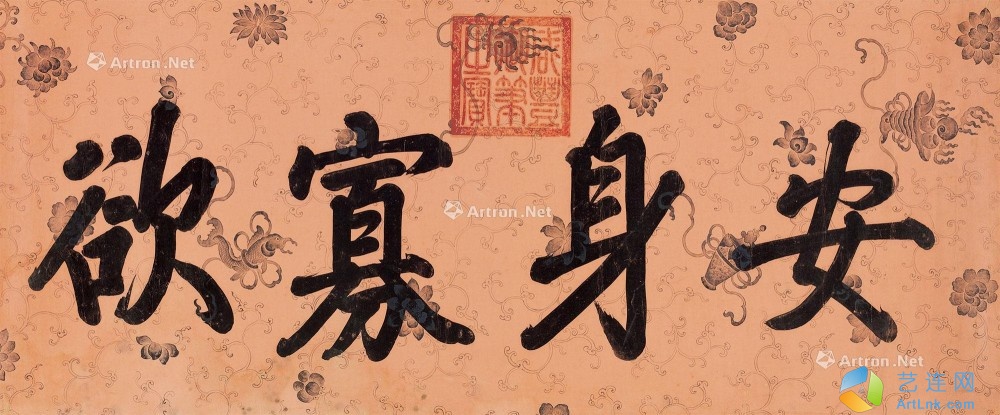 安身寡欲
咸豐御筆之寶
Artron.Net
Artron.Net
Artron.Net
艺连网
ArtLnk.com